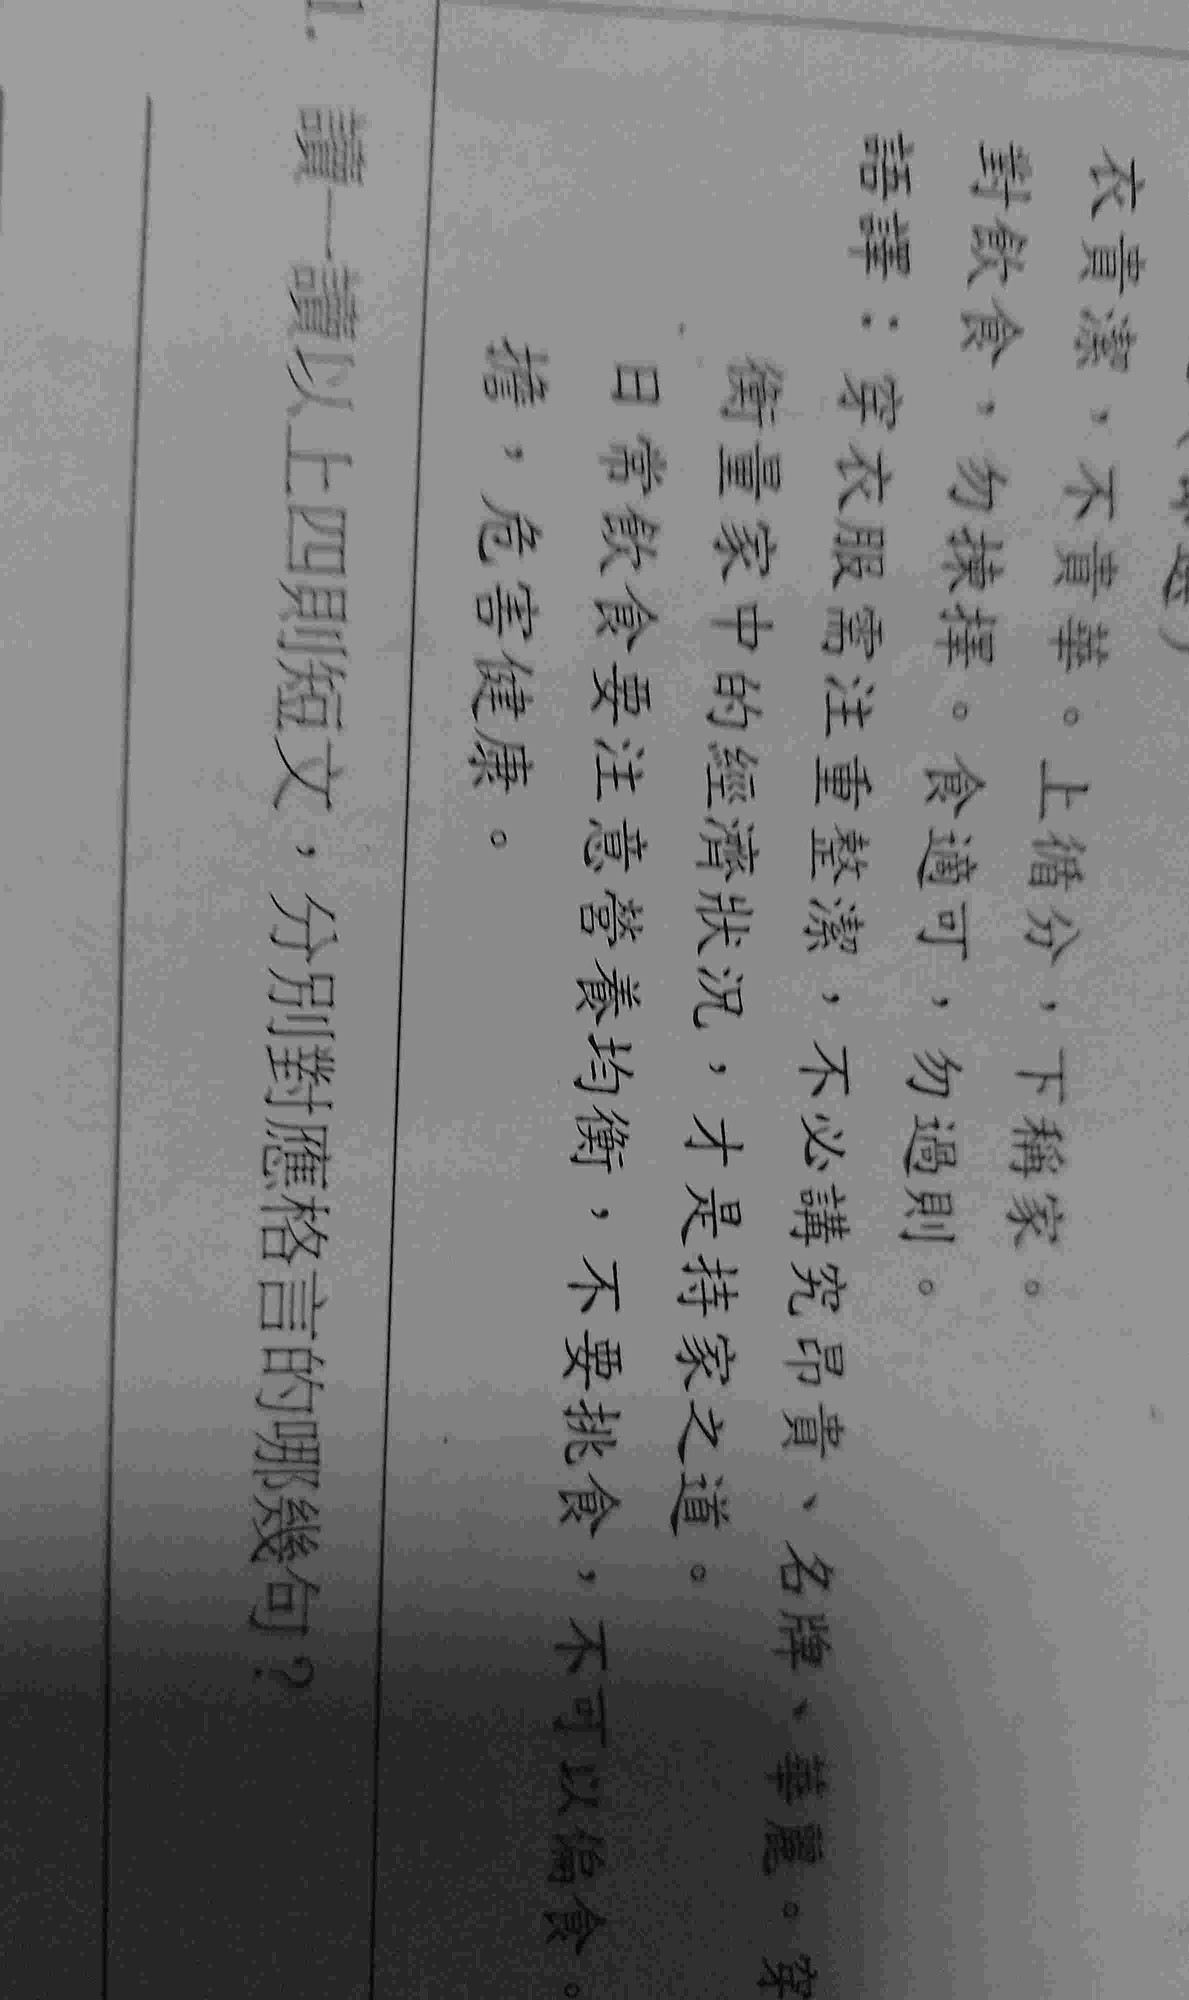 衣貴潔，不貴華。上循分，下稱家。
對飲食，勿揀擇。食適可，勿過則。
語譯：穿衣服需注重整潔，不必講究昂貴、名牌、華麗。穿
衡量家中的經濟狀況，才是持家之道。
日常飲食要注意營養均衡，不要挑食，不可以偏食。
擔，危害健康。
1. 讀一讀以上四則短文，分別對應格言的哪幾句？